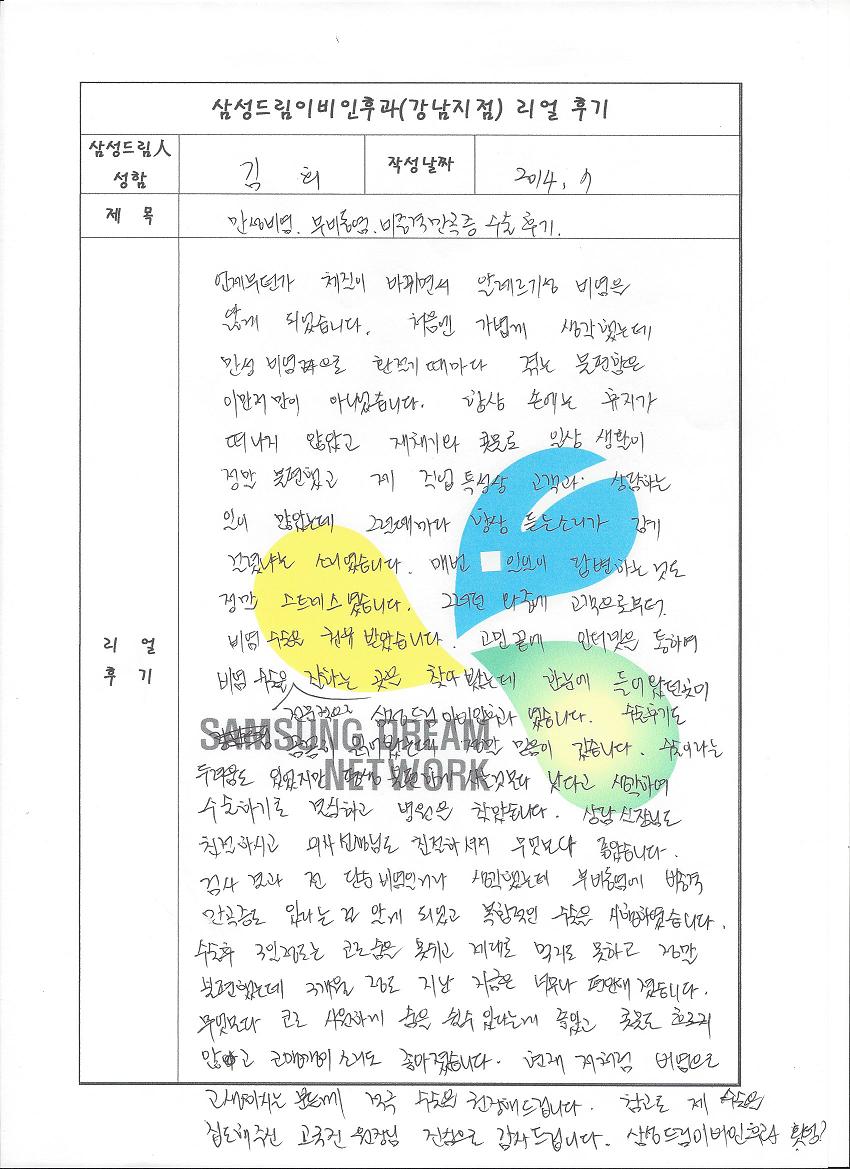 삼성드림이비인후과(강남지점) 리얼 후기
삼성드림人 성함
김 희
작성날짜
2014. 9
제 목
만성비염. 부비동염. 비중격만곡증 수술 후기.
리 얼 후 기
언제부턴가 체질이 바뀌면서 알레르기성 비염을
앓게 되었습니다. 처음엔 가볍게 생각했는데
만성 비염으로 환절기때마다 겪는 불편함은
이만저만이 아니었습니다. 항상 손에는 휴지가
떠나지 않았고 재채기와 콧물로 일상 생활이
정말 불편했고 제 직업 특성상 고객과 상담하는
일이 많았는데 그럴때마다 항상 듣는소리가 감기
걸렸냐는 소리였습니다. 매번 답변하는것도
정말 스트레스였습니다. 그러던 와중에 고객으로부터
비염 수술을 권유 받았습니다. 고민끝에 인터넷을 통하여
비염 수술을 잘하는 곳을 찾아봤는데 눈에 들어왔던곳이
삼성드림이비인후과 였습니다. 수술후기도
꼼꼼히 읽어봤는데 정말 믿음이 갔습니다. 수술이라는
두려움도 있었지만 평생 불편하게 사는것보다 낫다고 생각하여
수술하기로 결심하고 병원을 찾았습니다. 상담실장님도
친절하시고 의사선생님도 친절하셔서 무엇보다 좋았습니다.
검사 결과 전 단순 비염인거라 생각했는데 부비동염에 비중격
만곡증도 있다는 걸 알게 되었고 복합적인 수술을 시행하였습니다.
수술후 3일정도는 코로 숨을 못쉬고 제대로 먹지도 못하고 정말
불편했는데 3개월 정도 지난 지금은 너무나 편안해 졌습니다.
무엇보다 코로 시원하게 숨을 쉴수 있다는게 좋았고 콧물도 흐르지
않고 코맹맹이 소리도 좋아졌습니다. 현재 저처럼 비염으로
고생하시는 분들께 적극 수술을 권장해드립니다. 참고로 제 수술을
집도해주신 고국진 원장님 진심으로 감사드립니다. 삼성드림이비인후과 화이팅!
SAMSUNG DREAM
NETWORK